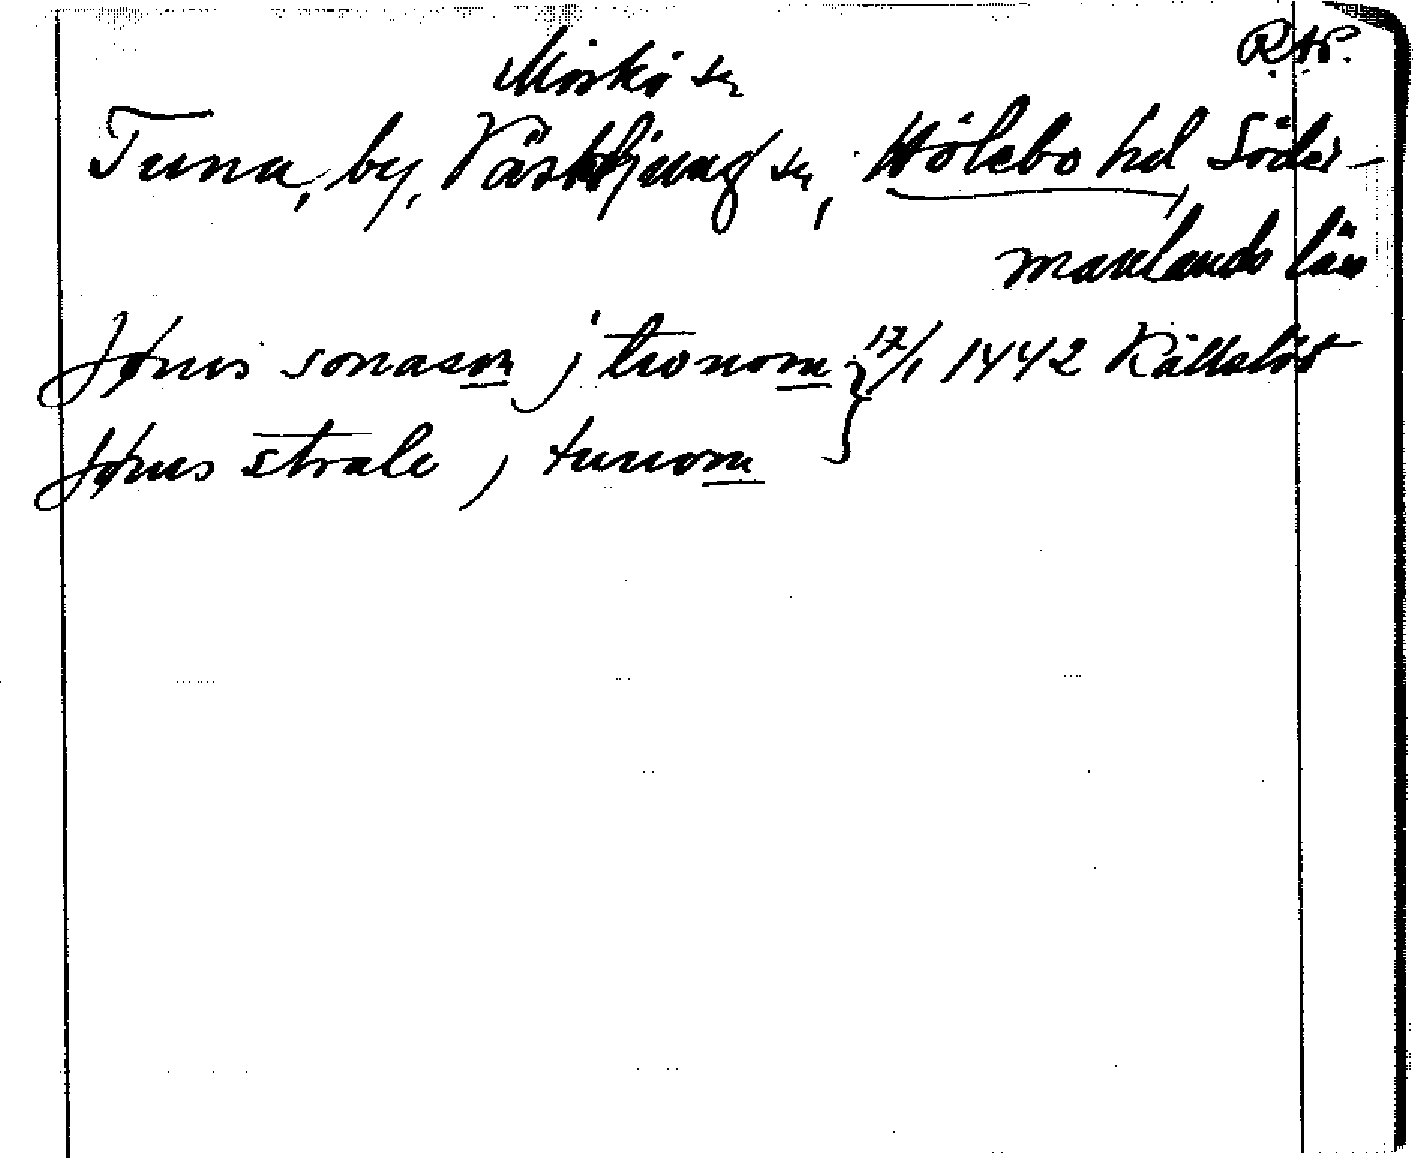 RAP.
Mörkö sn
Tuna, by, Västerljung sn, Hölebo hd, Söder-
manlands län
Jønis jonason j tronom } 17/1 1442 Källslöt
Jønis strale, tunom